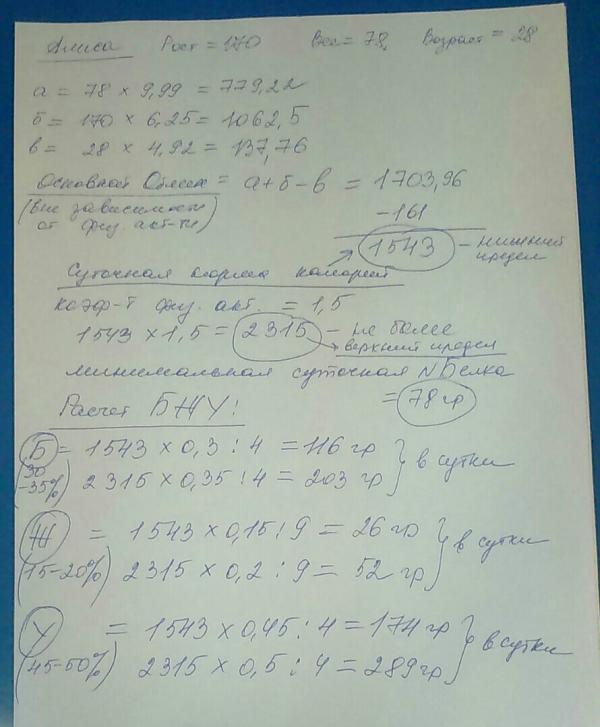 Алиса Рост = 170 Вес = 78, Возраст = 28
а = 78 × 9,99 = 779,22
б = 170 × 6,25 = 1062,5
в = 28 × 4,92 = 137,76
Основной Обмен = а + б - в = 1703,96
(вне зависимости
от физ. акт-ти)
-161
1543 - нижний
предел
Суточная норма калорий
коэф-т физ. акт. = 1,5
1543 × 1,5 = 2315 - не более
верхний предел
минимальная суточная N Белка
= 78 гр
Расчет БЖУ:
Б = 1543 × 0,3 : 4 = 116 гр
(30
-35%) 2315 × 0,35 : 4 = 203 гр } в сутки
Ж = 1543 × 0,15 : 9 = 26 гр
(15-20%) 2315 × 0,2 : 9 = 52 гр } в сутки
У = 1543 × 0,45 : 4 = 174 гр
(45-50%) 2315 × 0,5 : 4 = 289 гр } в сутки